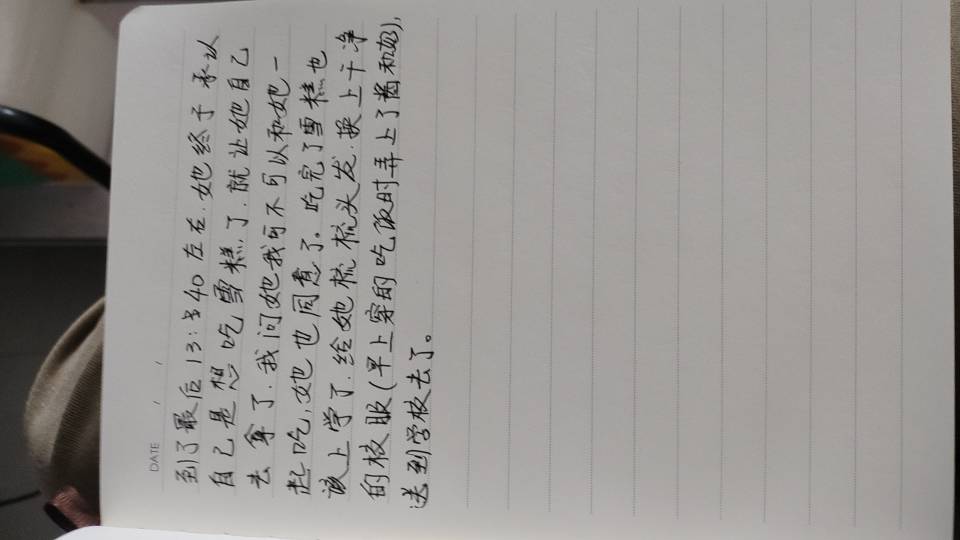 DATE
到了最后 13:40左右.她终于承认
自己是想吃雪糕了.就让她自己
去拿了.我问她我可不可以和她一
起吃,她也同意了。吃完了雪糕也
该上学了.给她梳梳头发.换上干净
的校服(早上穿的吃饭时弄上了酱和奶),
送到学校去了。